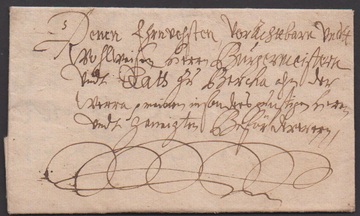 Denen Ehrnvesten Vorachtbarn Undt
Wohlweisen Herrn Bürgermeistern
undt Rath zu Bercka ahn der
Werra meinen insonders günstigen Herrn
undt geneigten